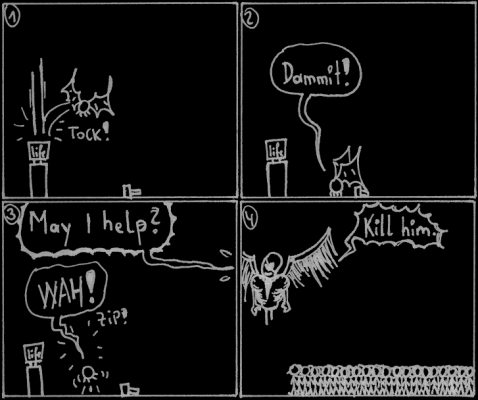 1
life
TOCK!
2
Dammit!
life
3
May I help?
WAH!
ZIP!
life
4
Kill him.